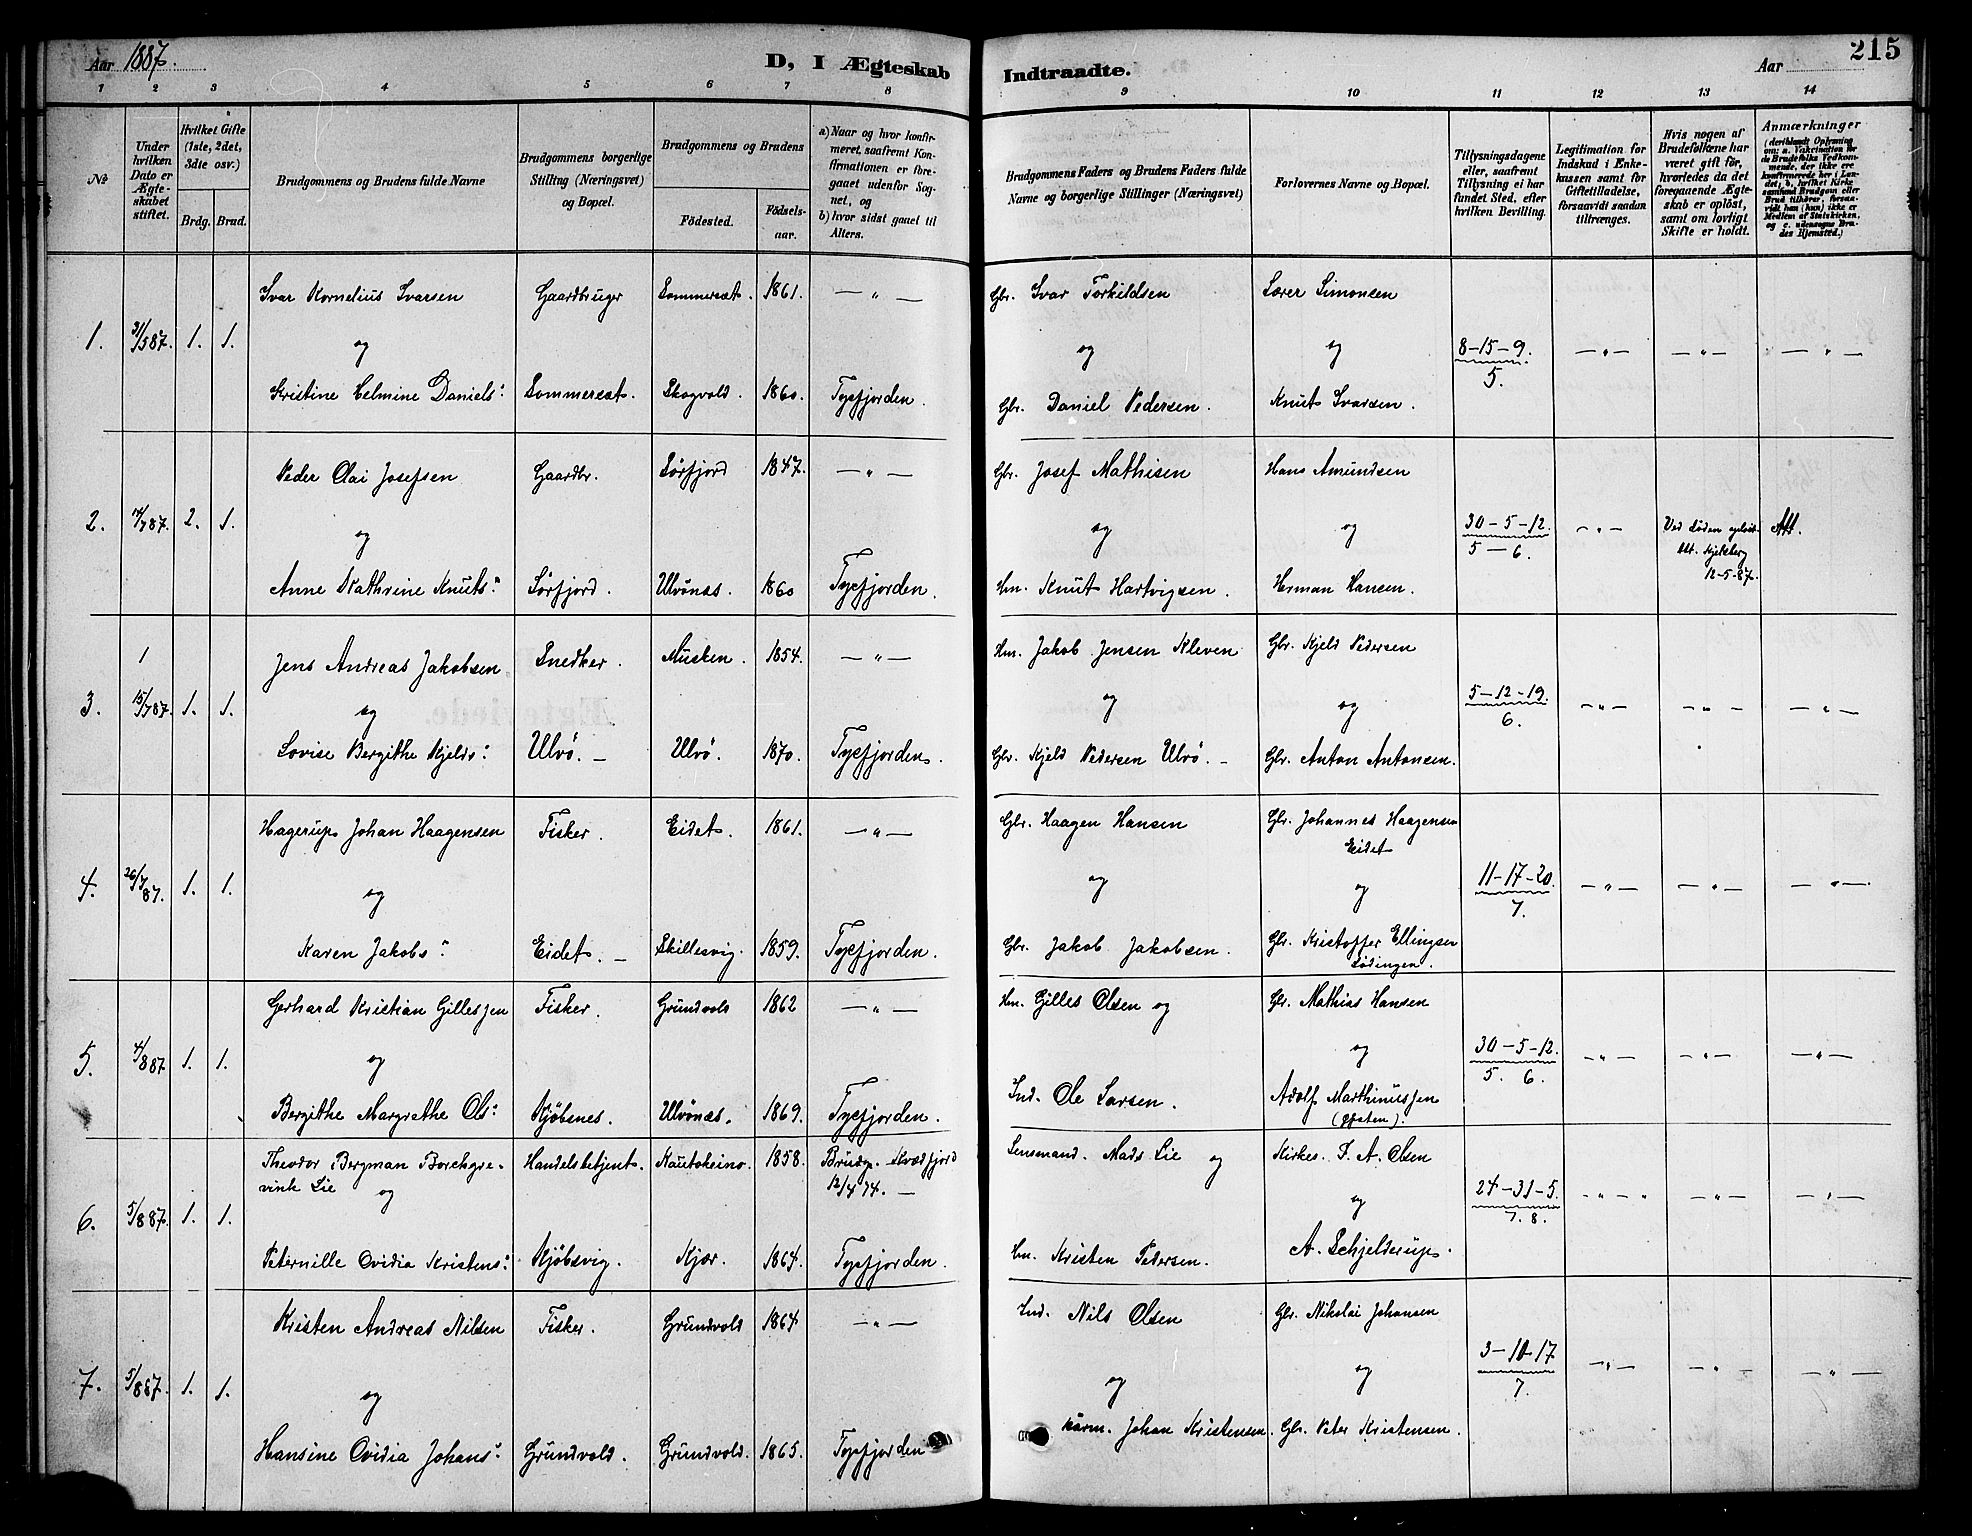 Aar 1887. D, I Ægteskab Indtraadte. Aar 215
1 2 3 4 5 6 7 8 9 10 11 12 13 14
No
Under hvilken Dato er Ægteskabet stiftet.
Hvilket Gifte (1ste, 2det, 3dte osv.)
Brdg. Brud.
Brudgommens og Brudens fulde Navne
Brudgommens borgerlige Stilling (Næringsvei) og Bopæl.
Brudgommens og Brudens
Fødested. Fødselsaar.
a) Naar og hvor konfirmeret, saafremt Konfirmationen er foregaaet udenfor Sognet, og
b) hvor sidst gaaet til Alters.
Brudgommens Faders og Brudens Faders fulde Navne og borgerlige Stillinger (Næringsvei)
Forlovernes Navne og Bopæl.
Tillysningsdagene eller, saafremt Tillysning ei har fundet Sted, efter hvilken Bevilling.
Legitimation for Indskud i Enkekassen samt for Giftetilladelse, forsaavidt saadan tiltrænges.
Hvis nogen af Brudefolkene har været gift før, hvorledes da det foregaaende Ægteskab er opløst, samt om lovligt Skifte er holdt.
Anmærkninger (deriblandt Oplysning om: a. Vakcination for de Brudefolks Vedkommende, der ikke ere konfirmerede her i Landet, b. hvilket Kirkesamfund Brudgom eller Brud tilhører, forsaavidt han (hun) ikke er Medlem af Statskirken, og c. udensogns Brudes Hjemsted.)
Ivar Kornelius Ivarsen Gaardbruger Sommersæt. 1861. — " — Gbr. Ivar Torkildsen Lærer Simonsen
1. 31/5 87. 1. 1. og og og 8-15-9. — " — — " — — " —
5.
Kristine Helmine Daniels: Sommersæt. Skogvold. 1860. Tysfjorden. Gbr. Daniel Pedersen. Knut Ivarsen.
Peder Olai Josefsen Gaardbr. Sørfjord 1847. — " — Gbr. Josef Mathisen Hans Amundsen
2. /7 87. 2. 1. og og og 30-5-12. — " — Ved Døden Att.
5-6. Kjelkberg
12-5-87.
Anne Kathrine Knuts: Sørfjord. Ulvönæs. 1860 Tysfjorden. Hm. Knut Hartvigsen. Herman Hansen.
1 Jens Andreas Jakobsen Snedker. Musken. 1854. — " — Hm. Jakob Jensen Kleven Gbr. Kjeld Pedersen
3. 15/7 87. 1. 1. og og og 5-12-19. — " — — " — — " —
6.
Lovise Bergithe Kjelds: Ulvö. — Ulvö. 1870. Tysfjorden. Gbr. Kjeld Pedersen Ulvö. — Gbr. Anton Antonsen.
Hagerup Johan Haagensen Fisker. Eidet. 1861. — " — Gbr. Haagen Hansen Gbr. Johannes Haagensen
Eidet
4. 26/7 87. 1. 1. og og og 11-17-20. — " — — " — — " —
7.
Karen Jakobs: Eidet. — Skillesvig. 1859. Tysfjorden. Gbr. Jakob Jakobsen. Gbr. Kristoffer Ellingsen
Lødingen.
Gerhard Kristian Gillesjen Fisker. Grundvold 1862 — " — Hm. Gilles Olsen og Gbr. Mathias Hansen
5. 4/8 87. 1. 1. og og 30-5-12. — " — — " — — " —
5. 6.
Bergithe Margrethe Ols: Kjöbsnes. Ulvönæs. 1869. Tysfjorden. Ind. Ole Larsen. Adolf Marthinussen
Theodor Bergman Borchgrevink Lie Handelsbetjent. Kautokeino. 1858. Brudg. Kvædfjord Lensmand. Mads Lie og Kirkes. J. A. Olsen
og 12/4 74. —
6. 5/8 87. 1. 1. og 24-31-5. — " — — " — — " —
7. 8.
Peternille Ovidia Kristens: Kjöbsvig. Kjær. 1864. Tysfjorden. Hm. Kristen Pedersen. A. Schjelderup.
Kristen Andreas Nilsen Fisker. Grundvold 1864 — " — Ind. Nils Olsen Gbr. Nikolai Johansen
7. 5/8 87. 1. 1. og og og 3-10-17 — " — — " — — " —
7.
Hansine Ovidia Johans: Grundvold. Grundvold. 1865. Tysfjorden Johan Kristensen. Gbr. Peter Kristensen.